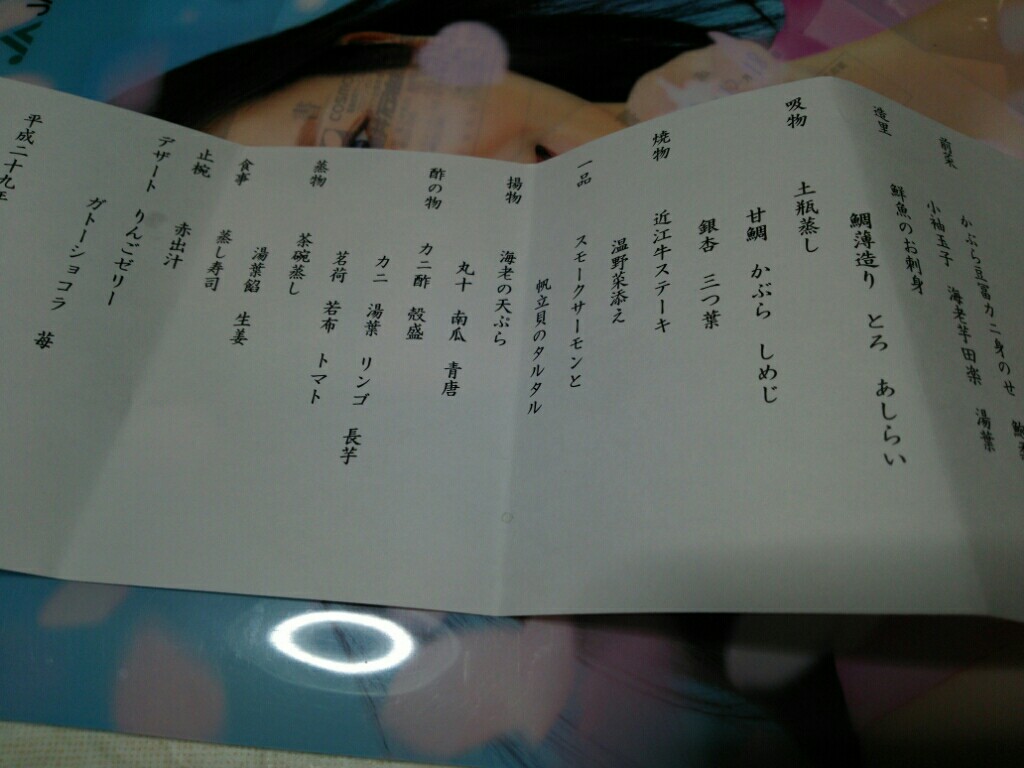 前菜
かぶら豆冨カニ身のせ
小袖玉子 海老芋田楽 湯葉
造里
鮮魚のお刺身
鯛薄造り とろ あしらい
吸物
土瓶蒸し
甘鯛 かぶら しめじ
銀杏 三つ葉
焼物
近江牛ステーキ
温野菜添え
一品
スモークサーモンと
帆立貝のタルタル
揚物
海老の天ぷら
丸十 南瓜 青唐
酢の物
カニ酢 殻盛
カニ 湯葉 リンゴ 長芋
茗荷 若布 トマト
蒸物
茶碗蒸し
湯葉餡 生姜
食事
蒸し寿司
止椀
赤出汁
デザート
りんごゼリー
ガトーショコラ 苺
平成二十九年